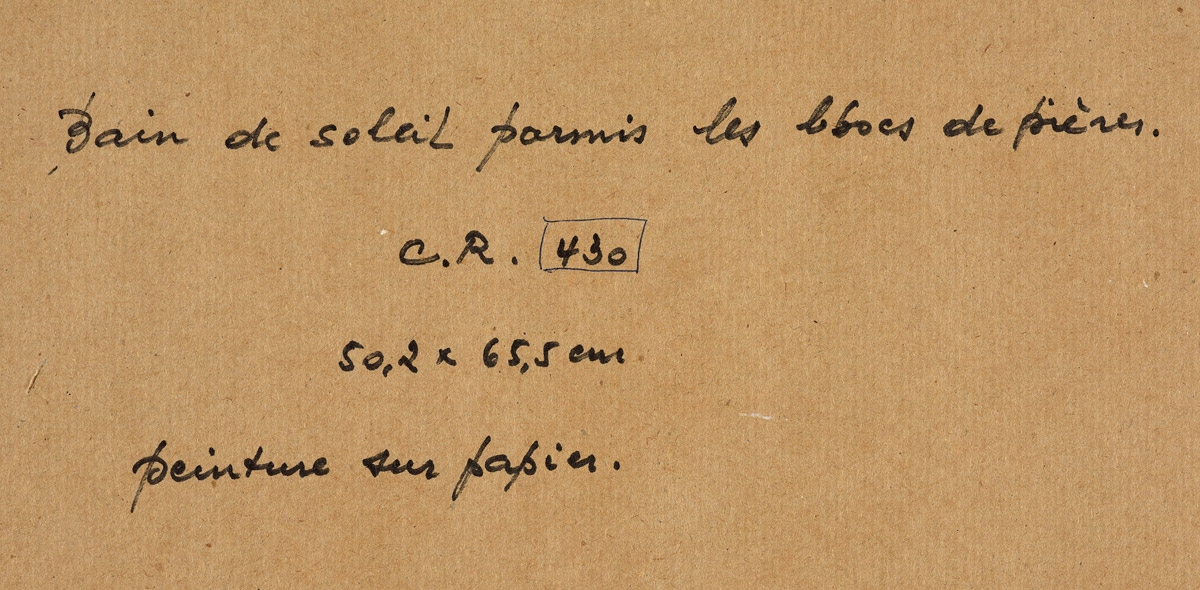 Bain de soleil parmis les blocs de pières.
C.R. 430
50,2 x 65,5 cm
peinture sur papier.